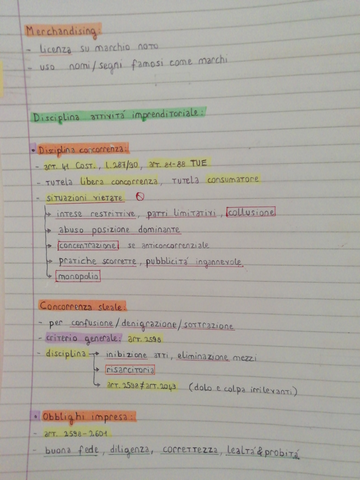 Merchandising:
- licenza su marchio noto
- uso nomi/segni famosi come marchi
Disciplina attività imprenditoriale:
• Disciplina concorrenza:
- art. 41 Cost., l. 287/90, art. 81-88 TUE
- tutela libera concorrenza, tutela consumatore
- situazioni vietate
→ intese restrittive, patti limitativi, collusione
→ abuso posizione dominante
→ concentrazione se anticoncorrenziale
→ pratiche scorrette, pubblicità ingannevole
→ monopolio
Concorrenza sleale:
- per confusione/denigrazione/sottrazione
- criterio generale: art. 2598
- disciplina → inibizione atti, eliminazione mezzi
→ risarcitoria
→ art. 2598 ≠ art. 2043 (dolo e colpa irrilevanti)
• Obblighi impresa:
- art. 2596-2601
- buona fede, diligenza, correttezza, lealtà & probità